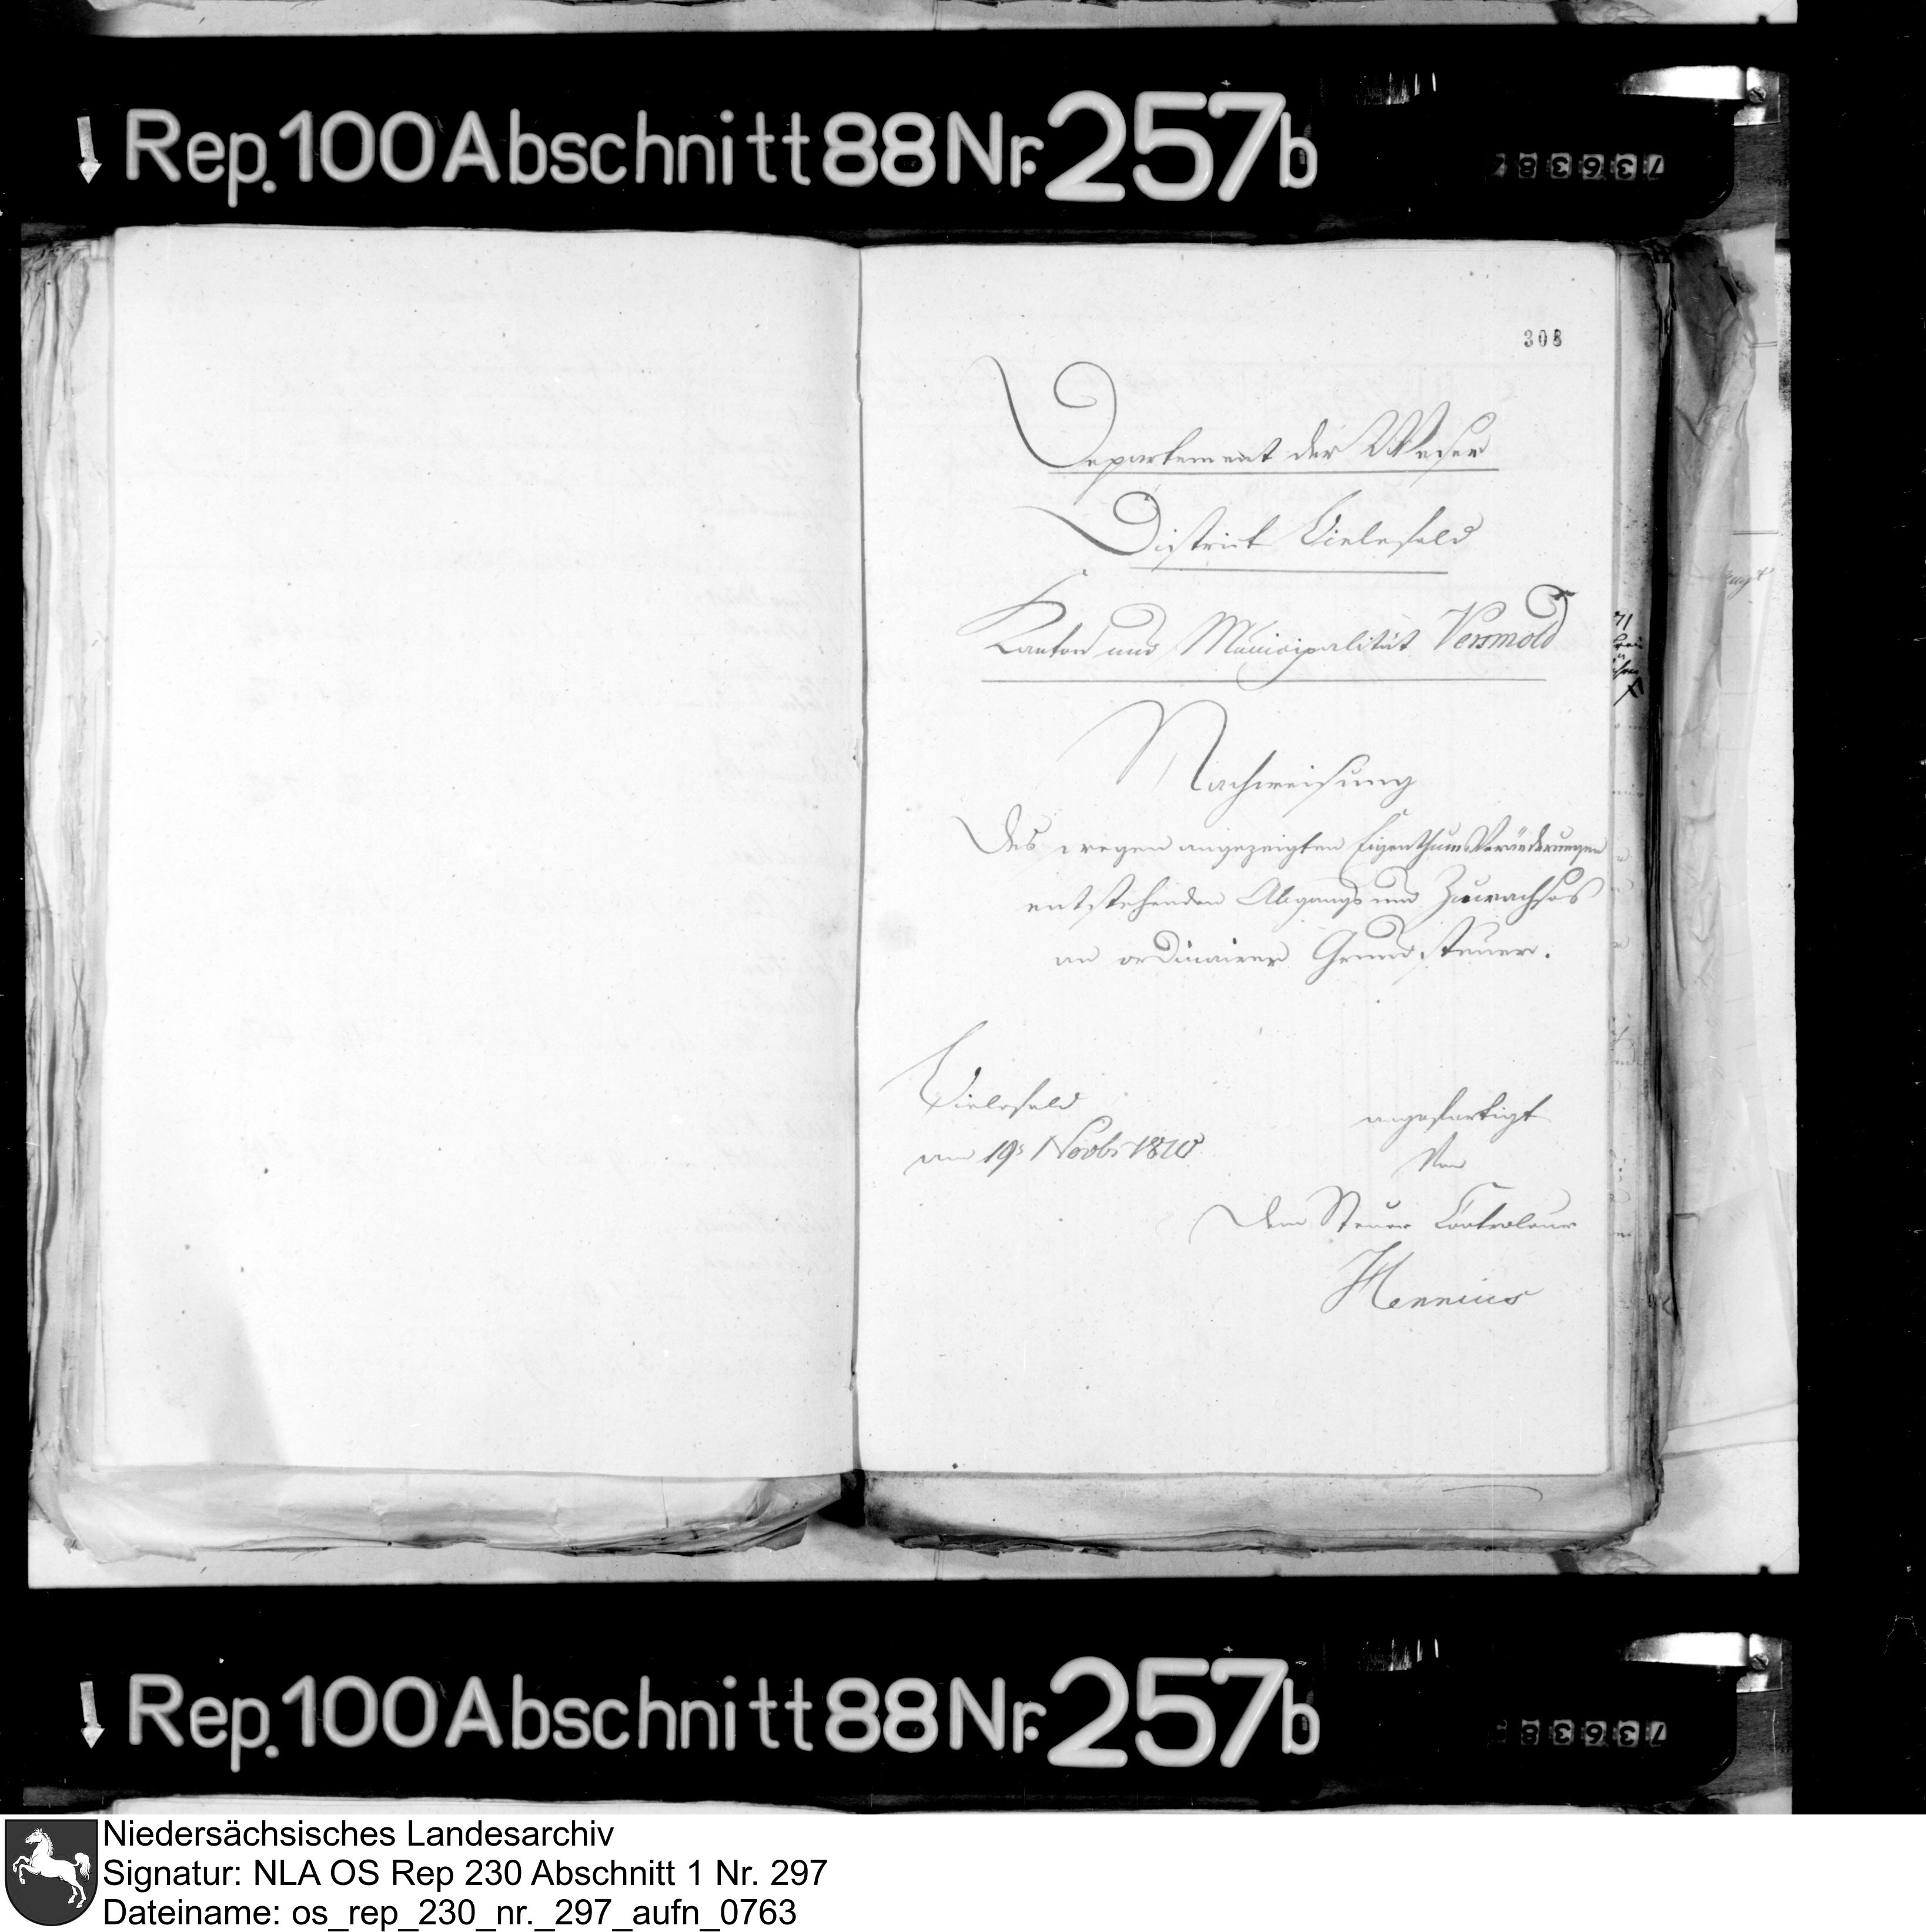 Rep. 100 Abschnitt 88 Nr. 257b
736387
308
Departement der Weser
District Bielefeld
Kanton und Municipalität Versmold
Nachweisung
Des wegen angezeigten Eigenthums Veränderungen
entstehenden Abgangs und Zuwachses
an ordinairer Grundsteuer.
Bielefeld
angefertigt
am 19t Novbr 1810
Von
Dem Steuer Controleur
Hennius
Rep. 100 Abschnitt 88 Nr. 257b
73638
Niedersächsisches Landesarchiv
Signatur: NLA OS Rep 230 Abschnitt 1 Nr. 297
Dateiname: os_rep_230_nr._297_aufn_0763